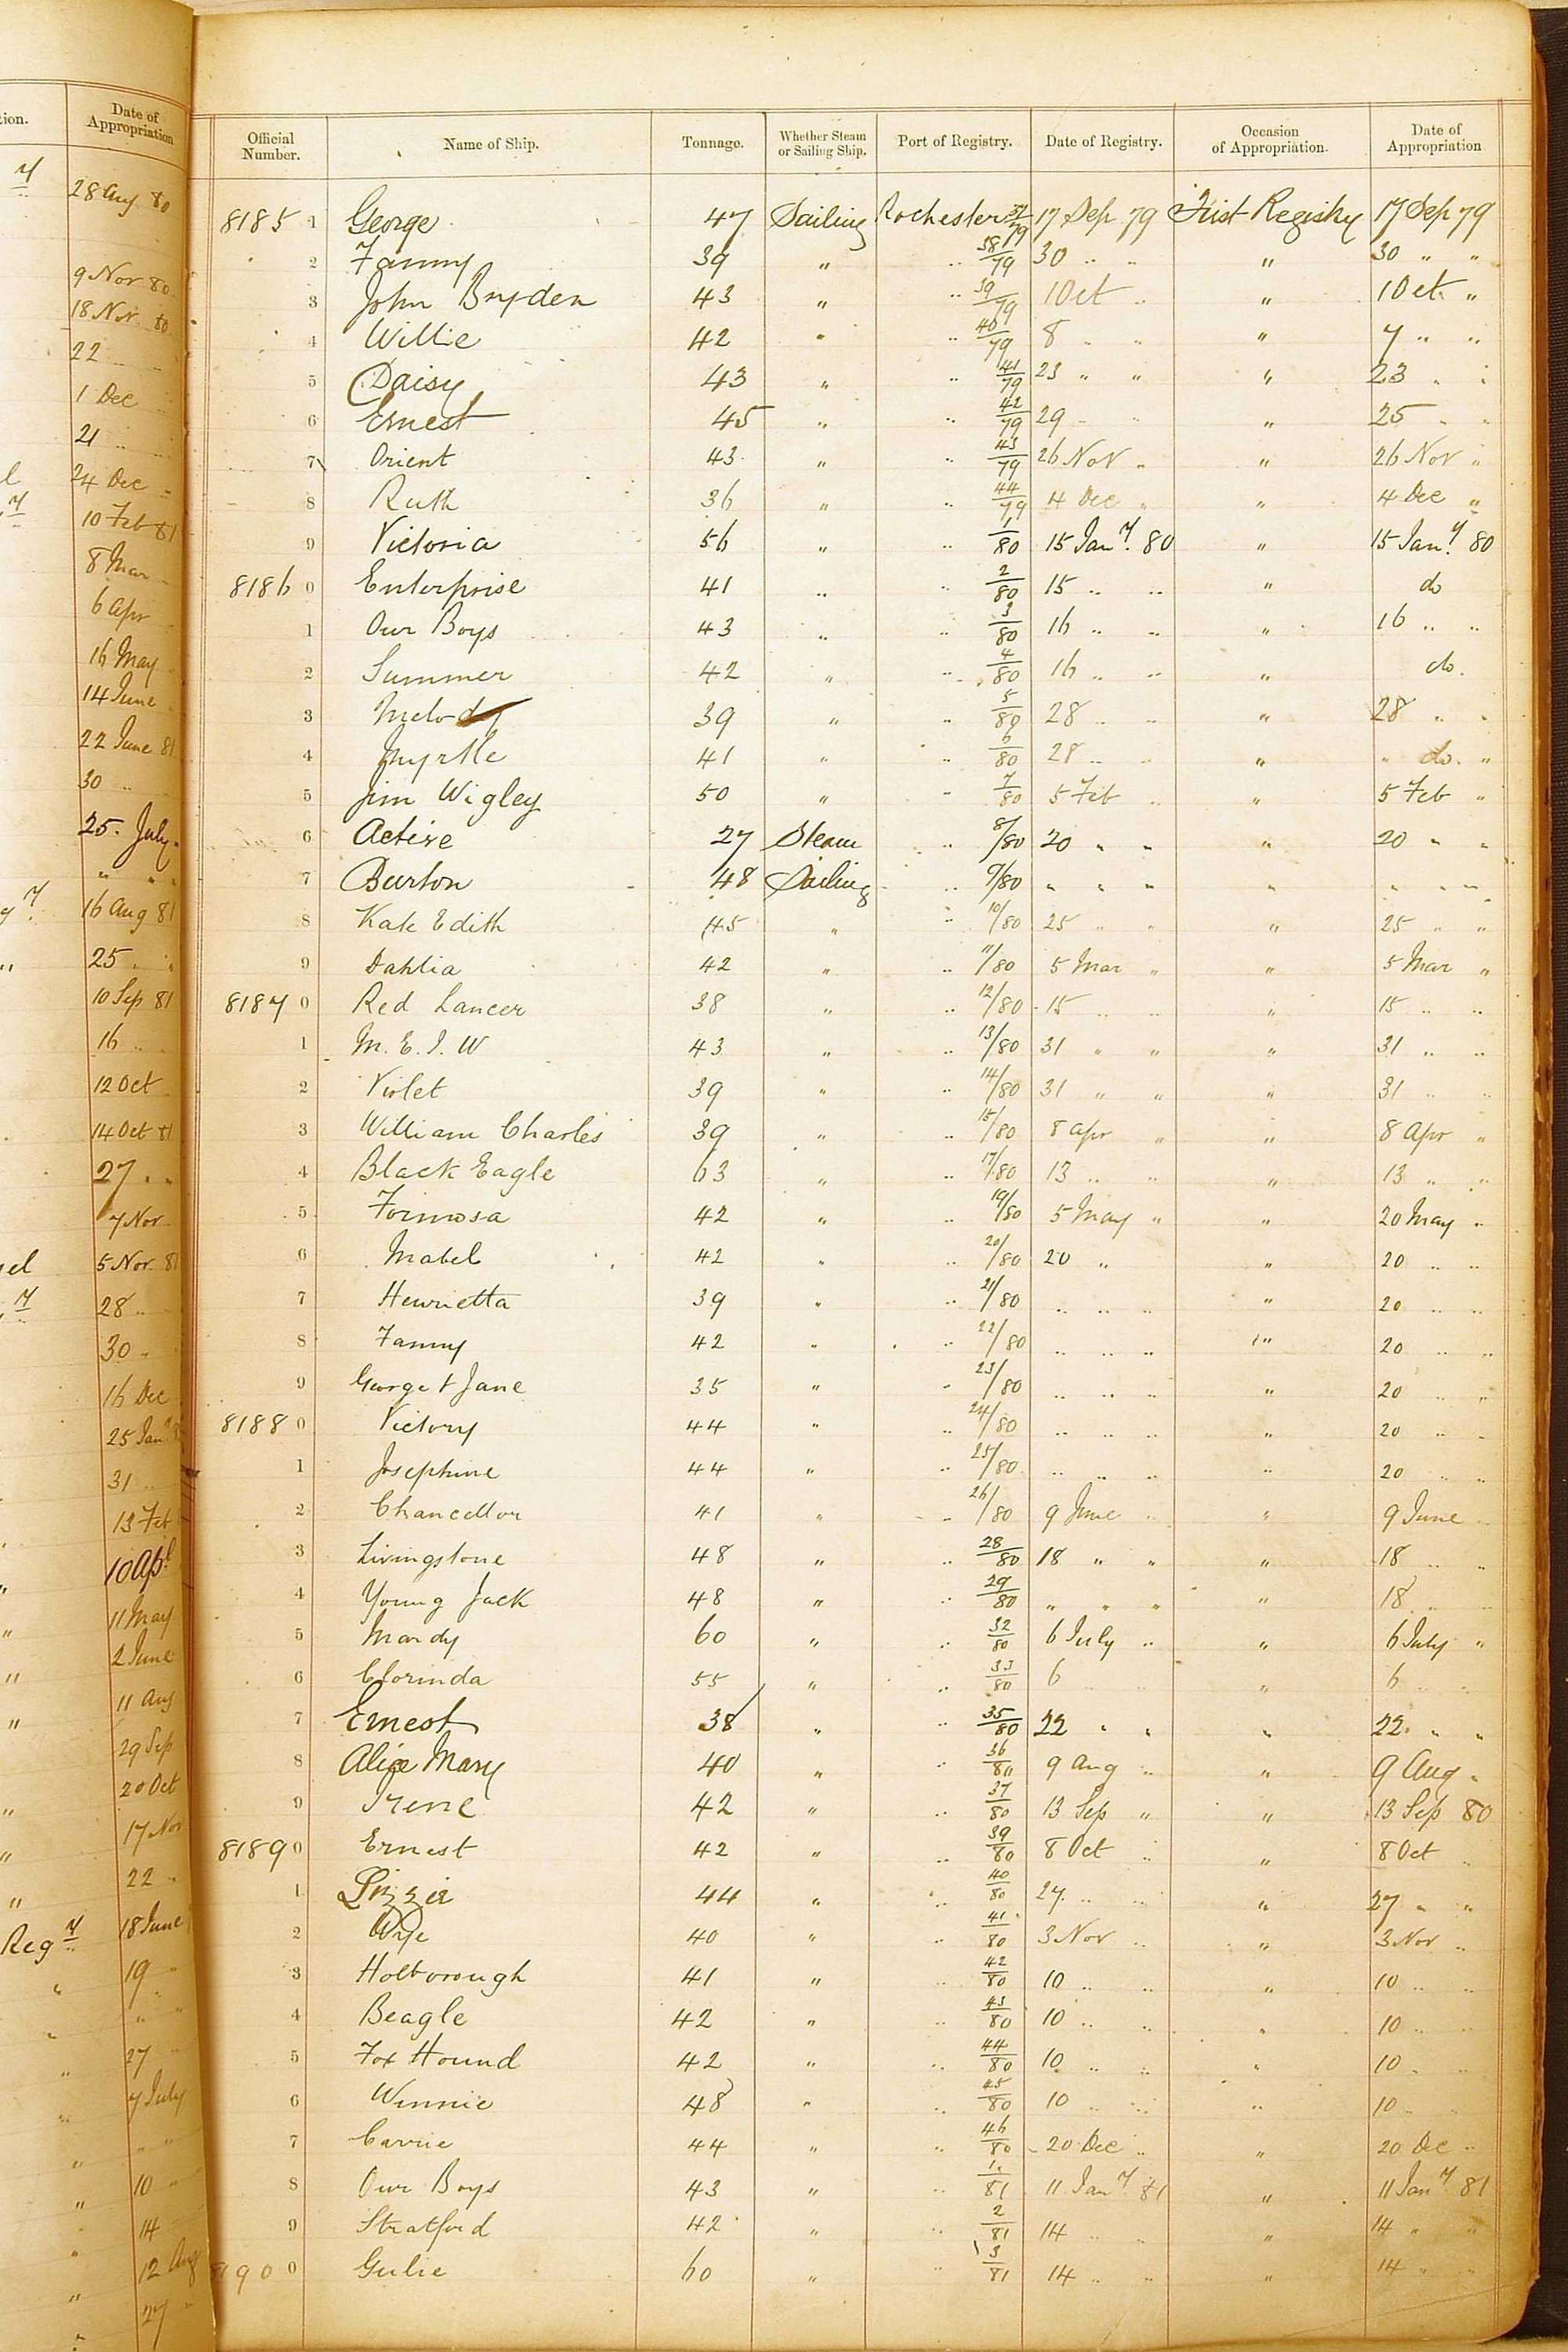 tion. Date of Appropriation
28 Aug 80
9 Nov 80
18 Nov 80
22 " "
1 Dec
21 "
24 Dec "
10 Feb 81
8 Mar
6 Apr
16 May
14 June
22 June 81
30 "
25. July.
" "
16 Aug 81
25 "
10 Sep 81
16 "
12 Oct
14 Oct 81
27 " "
7 Nov
5 Nov 81
28 "
30 "
16 Dec
25 Jan
31 "
13 Feb
10 Apl
11 May
2 June
11 Aug
29 Sep
20 Oct
17 Nov
22 "
Reg y 18 June
19 "
" "
27 "
7 July
" "
10 "
14
12 Aug
27 "
Official Number. Name of Ship. Tonnage. Whether Steam or Sailing Ship. Port of Registry. Date of Registry. Occasion of Appropriation. Date of Appropriation
8185 1 George 47 Sailing Rochester 37/79 17 Sep 79 First Registry 17 Sep 79
2 Fanny 39 " " 38/79 30 " " " 30 " "
3 John Bryden 43 " " 39/79 1 Oct " " 1 Oct "
4 Willie 42 " " 40/79 8 " " " 7 " "
5 Daisy 43 " " 41/79 23 " " " 23 " "
6 Ernest 45 " " 42/79 29 " " " 25 " "
7 Orient 43 " " 43/79 26 Nov " " 26 Nov "
8 Ruth 36 " " 44/79 4 Dec " " 4 Dec "
9 Victoria 56 " " 1/80 15 Jany. 80 " 15 Jany. 80
8186 0 Enterprise 41 " " 2/80 15 " " " do
1 Our Boys 43 " " 3/80 16 " " " 16 " "
2 Summer 42 " " 4/80 16 " " " do.
3 Melody 39 " " 5/80 28 " " " 28 " "
4 Myrtle 41 " " 6/80 28 " " " " do. "
5 Jim Wigley 50 " " 7/80 5 Feb " " 5 Feb "
6 Active 27 Steam " 8/80 20 " " " 20 " "
7 Burton 48 Sailing " 9/80 " " " " " " "
8 Kate Edith 45 " " 10/80 25 " " " 25 " "
9 Dahlia 42 " " 11/80 5 Mar " " 5 Mar "
8187 0 Red Lancer 38 " " 12/80 15 " " " 15 " "
1 M. E. I. W 43 " " 13/80 31 " " " 31 " "
2 Violet 39 " " 14/80 31 " " " 31 " "
3 William Charles 39 " " 15/80 8 Apr " " 8 Apr "
4 Black Eagle 63 " " 17/80 13 " " " 13 " "
5 Formosa 42 " " 19/80 5 May " " 20 May "
6 Mabel 42 " " 20/80 20 " " 20 " "
7 Henrietta 39 " " 21/80 " " " " 20 " "
8 Fanny 42 " " 22/80 " " " " 20 " "
9 George & Jane 35 " " 23/80 " " " " 20 " "
8188 0 Victory 44 " " 24/80 " " " " 20 " "
1 Josephine 44 " " 25/80 " " " " 20 " "
2 Chancellor 41 " " 26/80 9 June " " 9 June "
3 Livingstone 48 " " 28/80 18 " " " 18 " "
4 Young Jack 48 " " 29/80 " " " " 18 " "
5 Mardy 60 " " 32/80 6 July " " 6 July "
6 Clorinda 55 " " 33/80 6 " " " 6 " "
7 Ernest 38 " " 35/80 22 " " " 22 " "
8 Alice Mary 40 " " 36/80 9 Aug " " 9 Aug "
9 Irene 42 " " 37/80 13 Sep " " 13 Sep 80
8189 0 Ernest 42 " " 39/80 8 Oct " " 8 Oct "
1 Lizzie 44 " " 40/80 27 " " " 27 " "
2 Wye 40 " " 41/80 3 Nov " " 3 Nov "
3 Holborough 41 " " 42/80 10 " " " 10 " "
4 Beagle 42 " " 43/80 10 " " " 10 " "
5 Fox Hound 42 " " 44/80 10 " " " 10 " "
6 Winnie 48 " " 45/80 10 " " " 10 " "
7 Carrie 44 " " 46/80 20 Dec " " 20 Dec "
8 Our Boys 43 " " 1/81 11 Jany. 81 " 11 Jany 81
9 Stratford 42 " " 2/81 14 " " " 14 " "
8190 0 Gulie 60 " " 3/81 14 " " " 14 " "